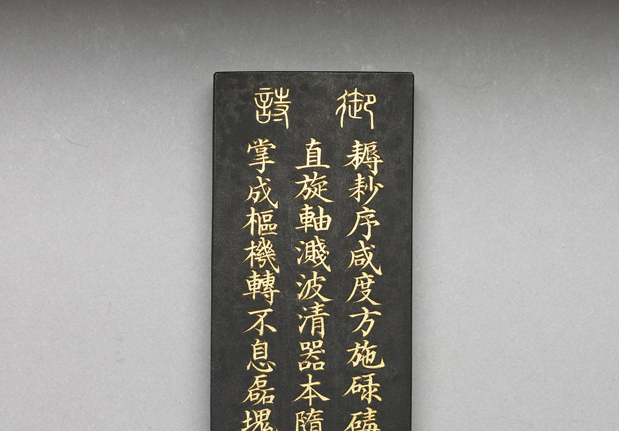 御詩
耨耖序咸度方施碌
直旋軸濺波清器本隨
掌成樞機轉不息磊塊